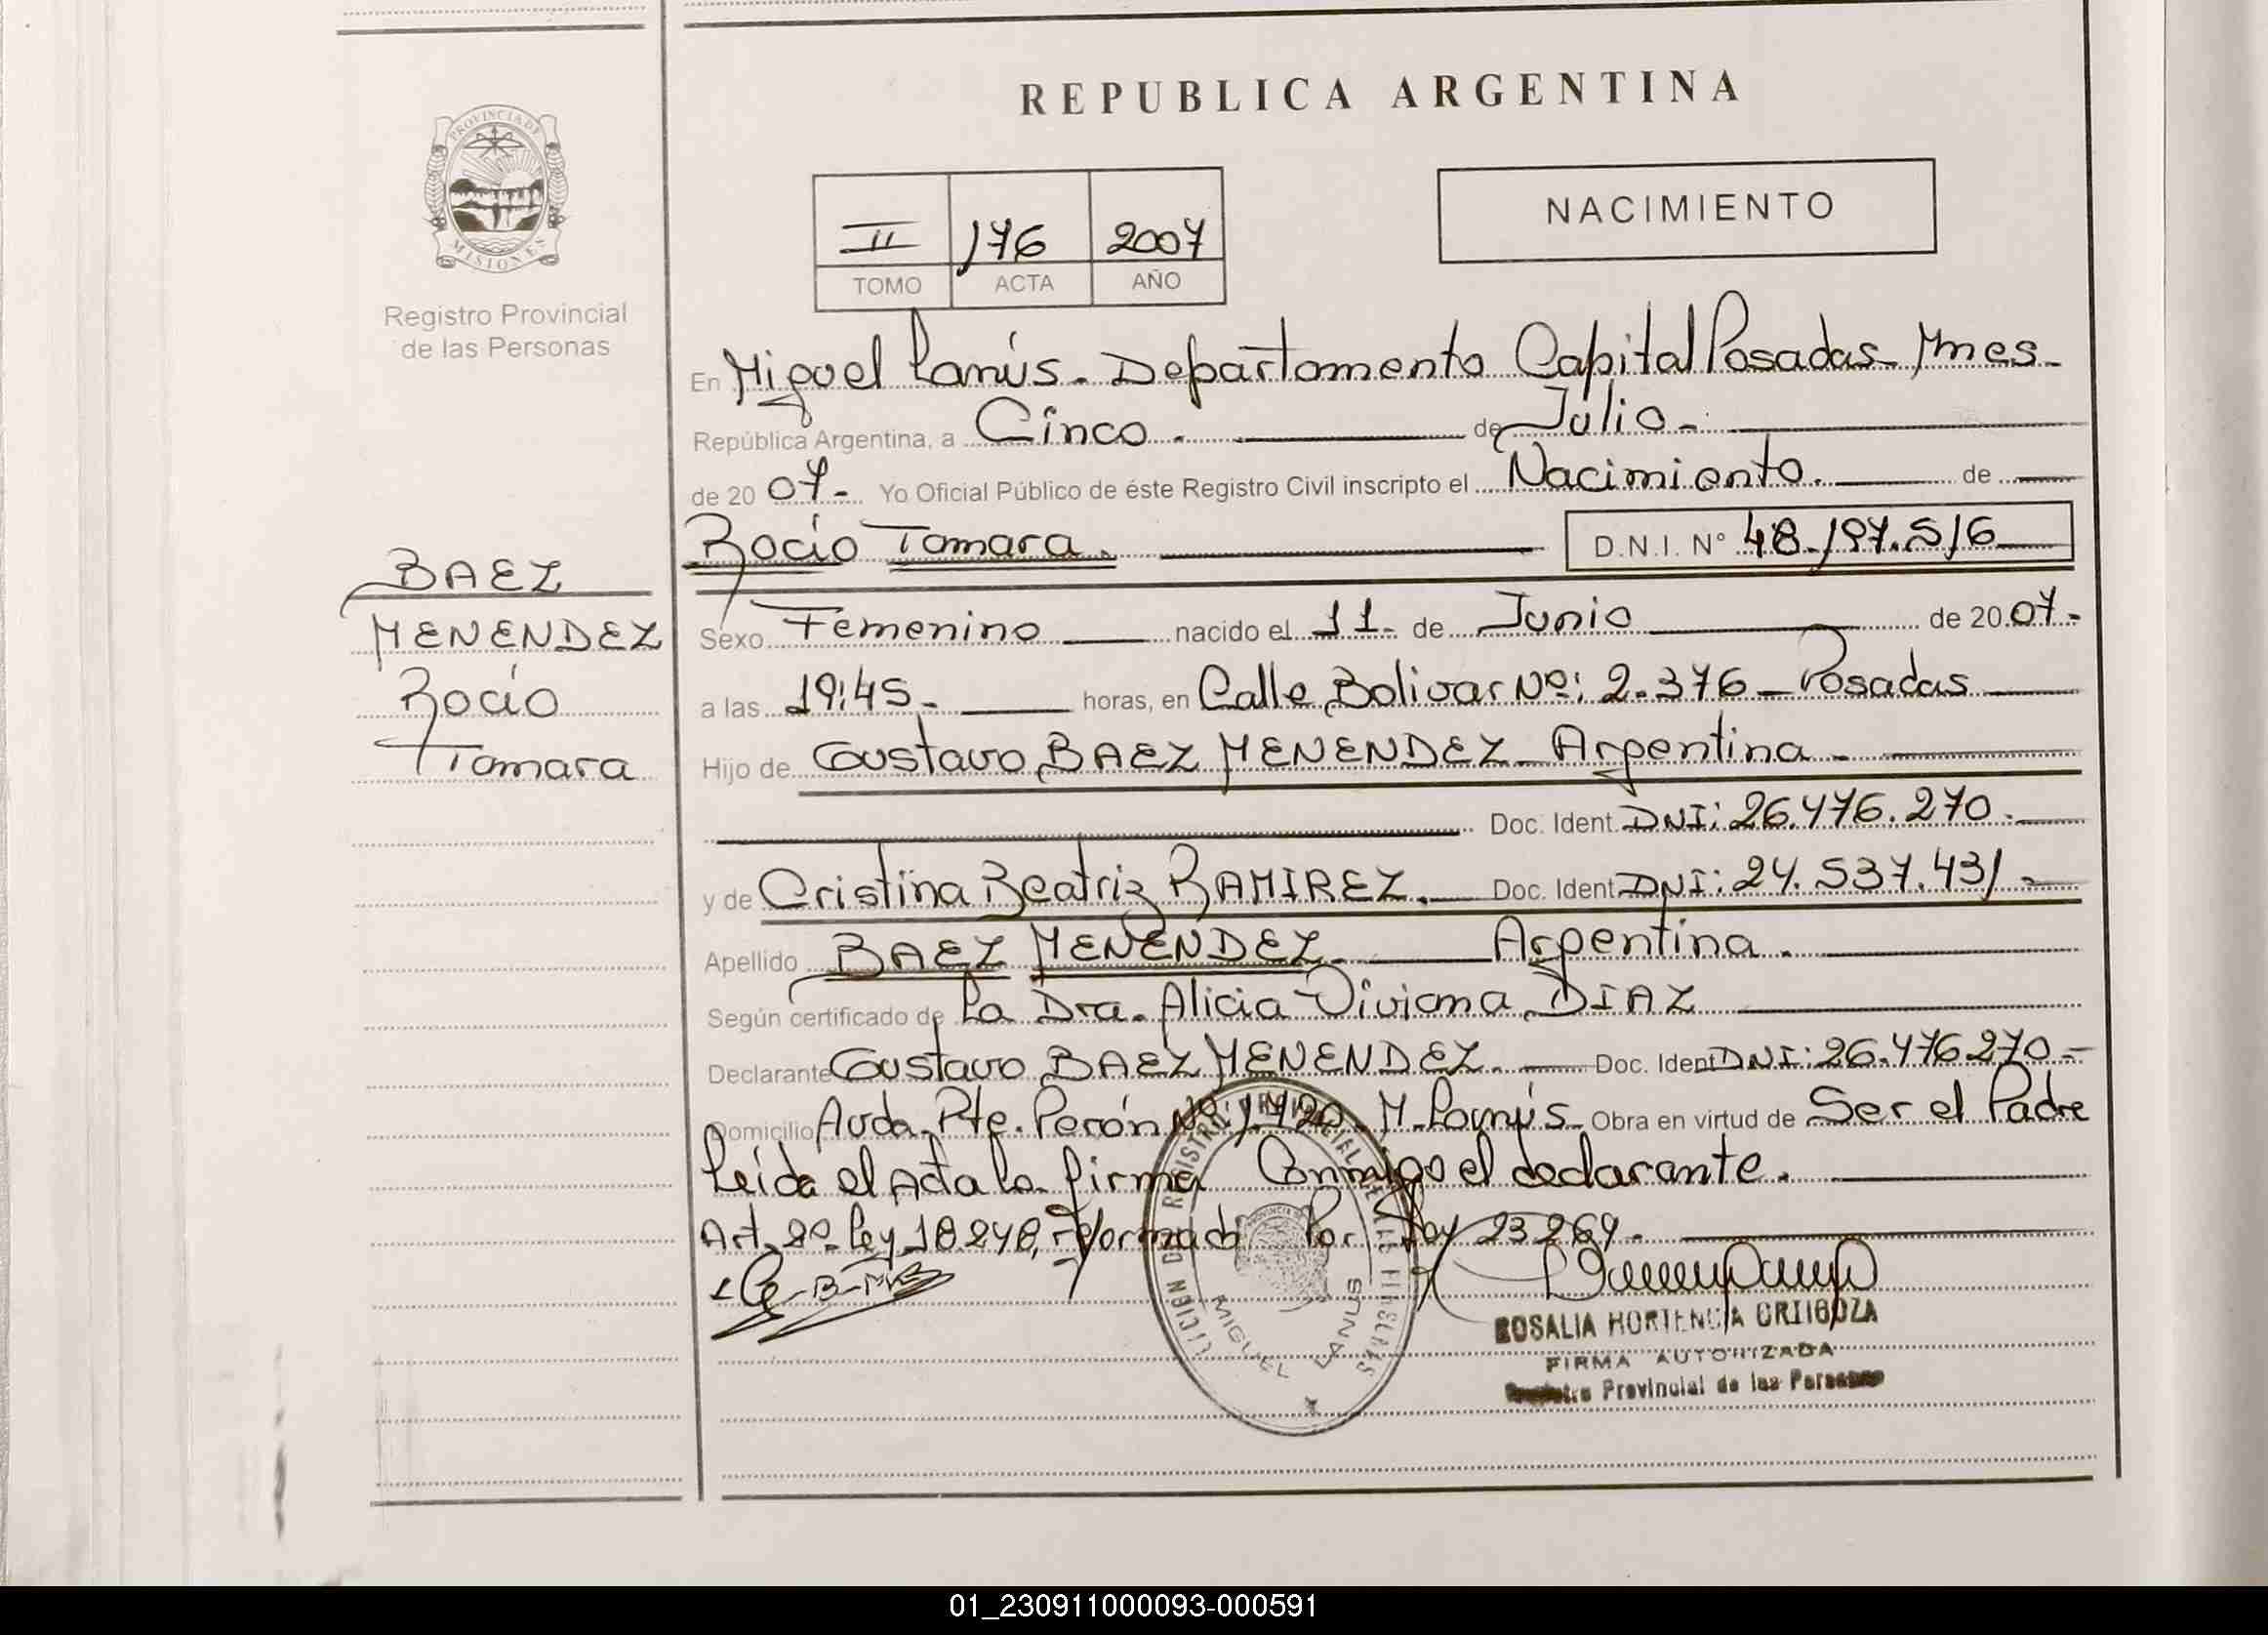 REPUBLICA ARGENTINA
PROVINCIA DE
MISIONES
Registro Provincial
de las Personas
NACIMIENTO
II 176 2007
TOMO ACTA AÑO
En Miguel Lanús - Departamento Capital Posadas - Mnes -
República Argentina, a Cinco. de Julio -
de 20 07 - Yo Oficial Público de éste Registro Civil inscripto el Nacimiento. de
Rocío Tamara. D.N.I. Nº 48.197.516
BAEZ
MENENDEZ
Rocío
Tamara
Sexo Femenino nacido el 11 - de Junio de 20 07 -
a las 19:45 - horas, en Calle Bolivar Nº: 2.376 - Posadas
Hijo de Gustavo BAEZ MENENDEZ - Argentina -
Doc. Ident. DNI: 26.476.270 -
y de Cristina Beatriz RAMIREZ. Doc. Ident. DNI: 24.537.431 -
Apellido BAEZ MENENDEZ - Argentina.
Según certificado de La Dra. Alicia Viviana DIAZ
Declarante Gustavo BAEZ MENENDEZ. Doc. Ident DNI: 26.476.270 -
Domicilio Avda. Pte. Perón Nº 1.420 - M. Lanús - Obra en virtud de Ser el Padre
Leída el Acta la firma Conmigo el declarante.
Art. 2º Ley 18.248, reformada Por Ley 23.264.
MIGUEL LANUS
ROSALIA HORTENCIA ORTIGOZA
FIRMA AUTORIZADA
Registro Provincial de las Personas
01_230911000093-000591